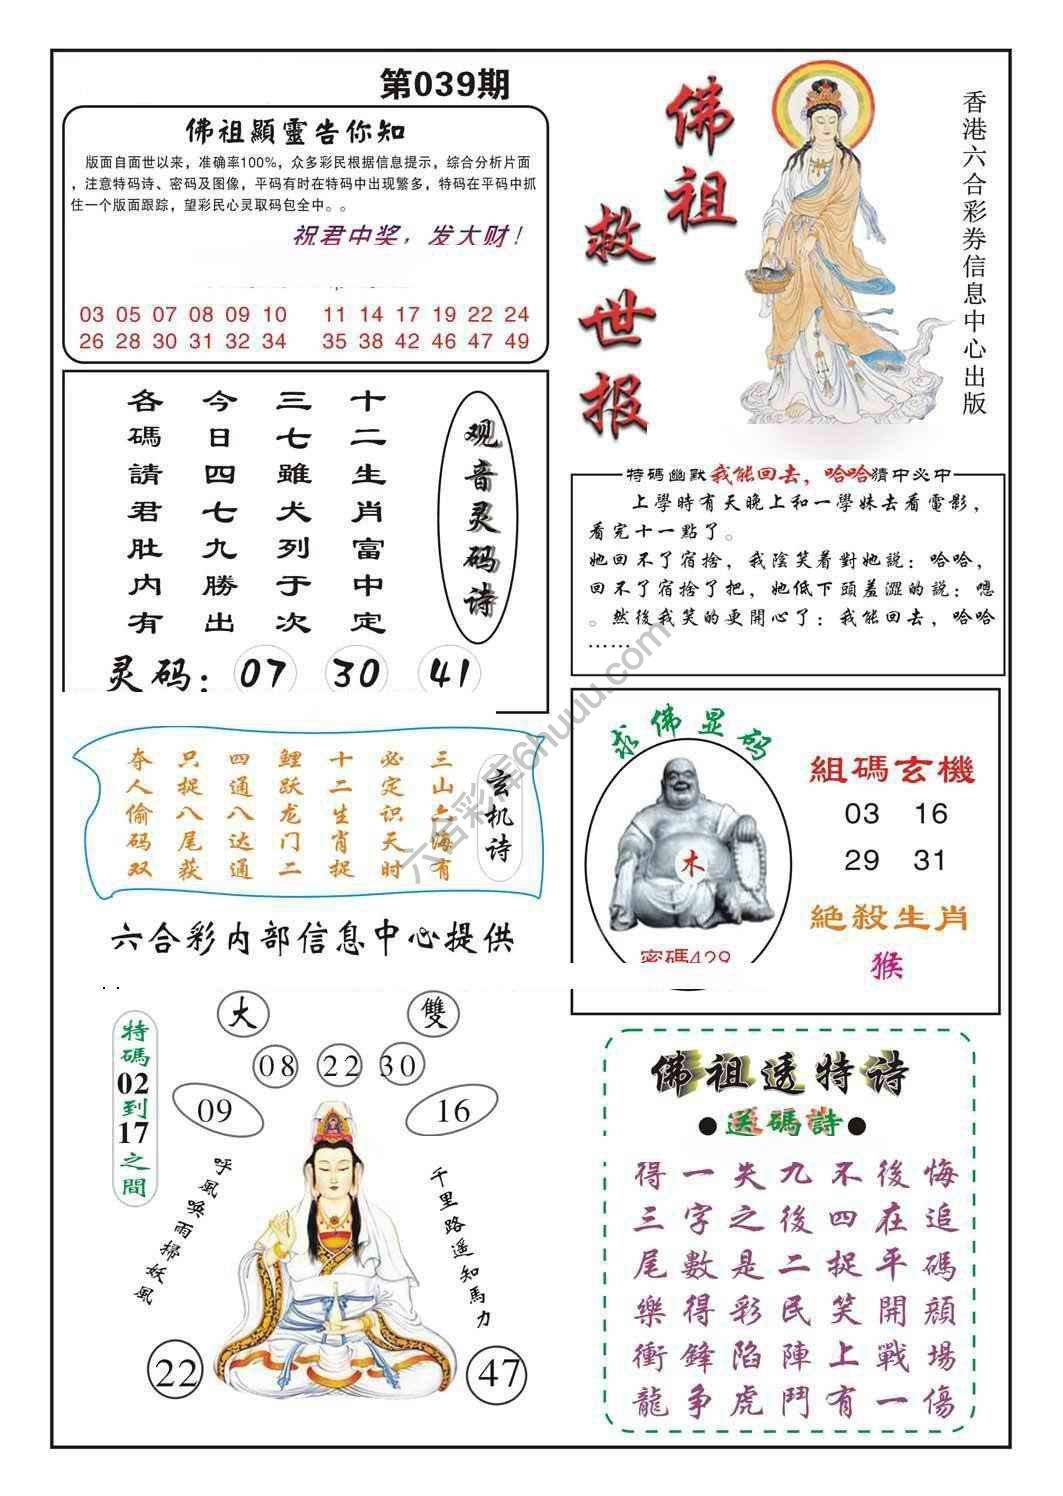 第039期
佛祖顯靈告你知
版面自面世以来，准确率100%，众多彩民根据信息提示，综合分析片面
，注意特码诗、密码及图像，平码有时在特码中出现繁多，特码在平码中抓
住一个版面跟踪，望彩民心灵取码包全中。。
祝君中奖，发大财！
03 05 07 08 09 10 11 14 17 19 22 24
26 28 30 31 32 34 35 38 42 46 47 49
佛祖
救世报
香港六合彩券信息中心出版
观音灵码诗
十二生肖富中定
三七雖犬列于次
今日四七九勝出
各碼請君肚内有
灵码：07 30 41
特碼幽默我能回去，哈哈猜中必中
上學時有天晚上和一學妹去看電影，
看完十一點了。
她回不了宿捨，我陰笑着對她説：哈哈，
回不了宿捨了把，她低下頭羞澀的説：嗯
。然後我笑的更開心了：我能回去，哈哈
……
玄机诗
三山六海有
必定识天时
十二生肖捉
鲤跃龙门二
四通八达通
只捉八尾获
夺人偷码双
六合彩内部信息中心提供
求佛显码
木
密碼429
組碼玄機
03 16
29 31
絕殺生肖
猴
大 雙
08 22 30
09 16
特碼02到17之間
呼風唤雨掃妖風
千里路遥知馬力
22 47
佛祖透特诗
●送碼詩●
得一失九不後悔
三字之後四在追
尾數是二捉平碼
樂得彩民笑開顔
衝鋒陷陣上戰場
龍争虎鬥有一傷
六合彩库6huuu.com